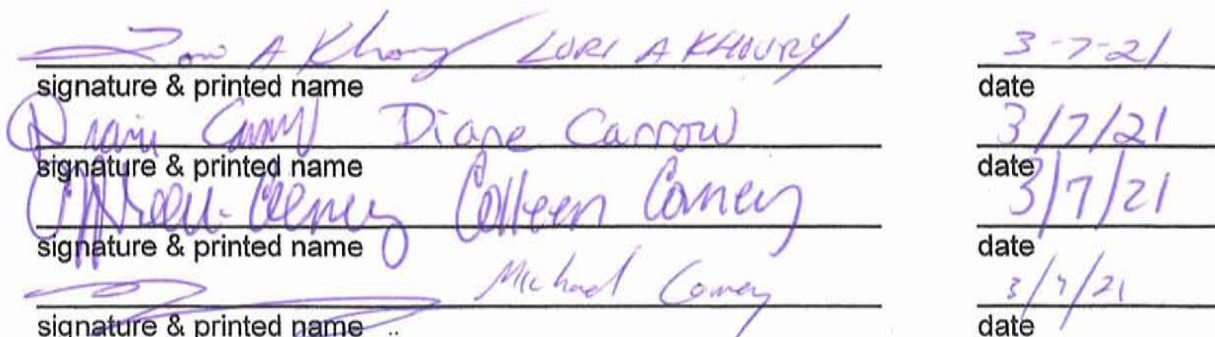 Lori A Khoury LORI A KHOURY 3-7-21
signature & printed name date
Diane Carrow Diane Carrow 3/7/21
signature & printed name date
Colleen Comey Colleen Comey 3/7/21
signature & printed name date
Michael Comey 3/7/21
signature & printed name date